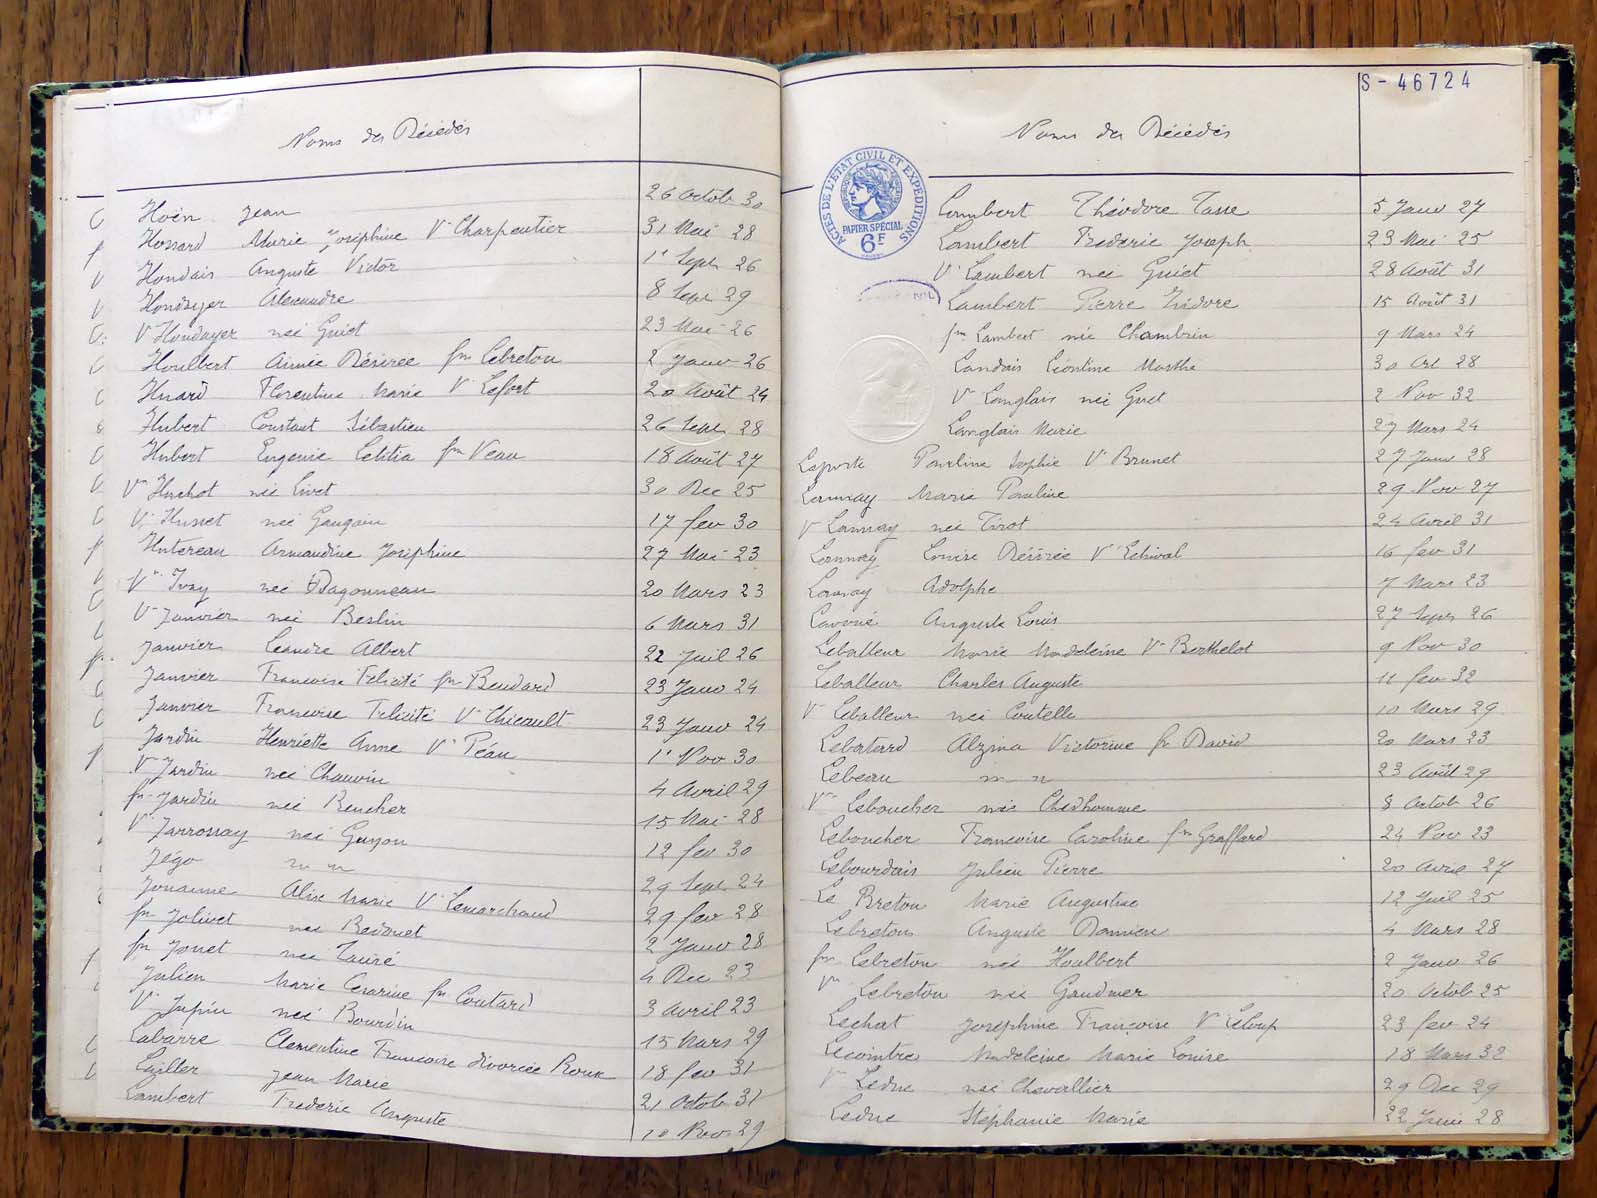 Noms des Décédés
Hoën Jean 26 Octob 30
Hossard Marie Joséphine Vᵉ Charpentier 31 Mai 28
Houdair Auguste Victor 1ᵉʳ Sept 26
Houdayer Alexandre 8 Sept 29
Vᵉ Houdayer née Guiet 23 Mai 26
Houlbert Aimée Désirée fᵐ Lebreton 2 Janv 26
Huard Florentine Marie Vᵉ Lefort 20 Août 24
Hubert Constant Sébastien 26 Sept 28
Hubert Eugenie Letitia fᵐ Veau 18 Août 27
Vᵉ Huchot née Livet 30 Dec 25
Vᵉ Husset née Gaugain 17 fev 30
Hutereau Armandine Joséphine 27 Mai 23
Vᵉ Ivay née Dagonneau 20 Mars 23
Vᵉ Janvier née Beslin 6 Mars 31
Janvier Leandre Albert 22 Juil 26
Janvier Francoise Félicité fᵐ 23 Janv 24
Janvier Francoise Felicité Vᵉ Chicault 23 Janv 24
Jardin Henriette Anne Vᵉ Péan 1ᵉʳ Nov 30
Vᵉ Jardin née Chauvin 4 Avril 29
fᵐ Jardin née Beucher 15 Mai 28
Vᵉ Jarrossay née Guyon 12 fev 30
Jégo m n 29 Sept 24
Jouanne Aline Marie Vᵉ Lemarchand 29 fev 28
fᵐ Jolivet née Bedouet 2 Janv 28
fᵐ Jouet née Lauré 4 Dec 23
Julien Marie Cesarine fᵐ Coutard 3 Avril 23
Vᵉ Jupin née Bourdin 15 Mars 29
Labarre Clementine Francoise divorcée Roux 18 fev 31
Lailler Jean Marie 21 Octob 31
Lambert Frederic Auguste 10 Nov 29
S-46724
Noms des Décédés
ACTES DE L'ETAT CIVIL ET EXPEDITIONS
PAPIER SPÉCIAL
6F
Lambert Théodore Tasse 5 Janv 27
Lambert Frederic Joseph 23 Mai 25
Vᵉ Lambert née Guiet 28 Août 31
Lambert Pierre Isidore 15 Août 31
fᵐ Lambert née Chambrin 9 Mars 24
Landais Léontine Marthe 30 Oct 28
Vᵉ Langlais née Guet 2 Nov 32
Langlais Marie 27 Mars 24
Laporte Pauline Sophie Vᵉ Brunet 27 Janv 28
Launay Marie Pauline 29 Nov 27
Vᵉ Launay née Tirot 24 Avril 31
Launay Louise Désirée Vᵉ Lehival 16 fev 31
Launay Adolphe 7 Mars 23
Lavoué Auguste Louis 27 Sept 26
Leballeur Marie Madeleine Vᵉ Berthelot 9 Nov 30
Leballeur Charles Auguste 11 fev 32
Vᵉ Leballeur née Coutelle 10 Mars 29
Lebatard Alzina Victorine fᵐ David 20 Mars 23
Lebeau m n 23 Août 29
Vᵉ Leboucher née Chedhomme 8 Octob 26
Leboucher Francoise Caroline fᵐ Graffard 24 Nov 23
Lebourdais Julien Pierre 20 Avril 27
Le Breton Marie Augustine 12 Juil 25
Lebreton Auguste Damien 4 Mars 28
fᵐ Lebreton née Houlbert 2 Janv 26
Vᵉ Lebreton née Gaudmer 20 Octob 25
Lechat Joséphine Françoise Vᵉ Leloup 23 fev 24
Lecointre Madeleine Marie Louise 18 Mars 32
Vᵉ Leduc née Chevallier 29 Dec 29
Leduc Stéphanie Marie 22 Juin 28